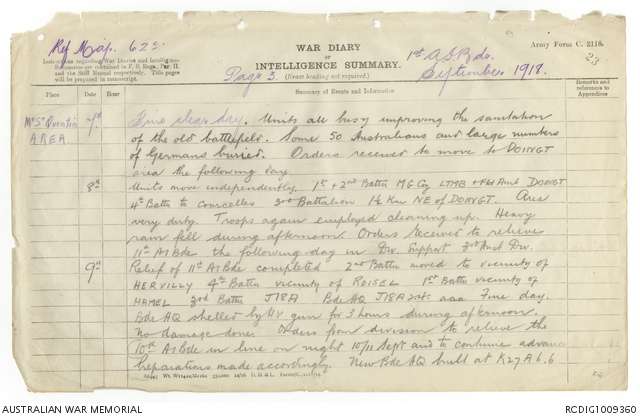 Ref Map. 62c.
WAR DIARY
or
INTELLIGENCE SUMMARY.
(Erase heading not required.)
Army Form C. 2118.
23
Instructions regarding War Diaries and Intelligence
Summaries are contained in F. S. Regs., Part II.
and the Staff Manual respectively. Title pages
will be prepared in manuscript.
Page 3.
1st A.I. Bde.
September 1918.
Place
Date
Hour
Summary of Events and Information
Remarks and
references to
Appendices
Mt St Quentin
AREA
7th
Fine clear day. Units all busy improving the sanitation
of the old battlefield. Some 50 Australians and large numbers
of Germans buried. Orders received to move to DOINGT
area the following day.
8th
Units move independently. 1st + 2nd Battn MG Coy LTMB + Fld Amb DOINGT
4th Battn to Courcelles 3rd Battalion 1½ Km NE of DOINGT. Area
very dirty. Troops again employed cleaning up. Heavy
rain fell during afternoon. Orders received to relieve
11th AI Bde the following day in Div. Support 3rd Aust Div.
9th
Relief of 11th AI Bde completed 2nd Battn moved to vicinity of
HERVILLY 4th Battn vicinity of ROISEL 1st Battn vicinity of
HAMEL 3rd Battn J18A Bde HQ J18A aaa Fine day.
Bde HQ shelled by HV gun for 3 hours during afternoon.
No damage done. Orders from division to relieve the
10th AI Bde in line on night 10/11 Sept and to continue advance
Preparations made accordingly. New Bde HQ built at K27A6.6
AUSTRALIAN WAR MEMORIAL
RCDIG1009360